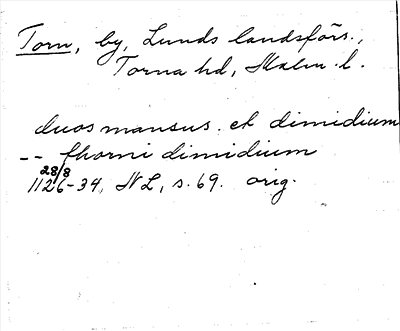 Torn, by, Lunds landsförs.,
Torna hd, Malm. l.
duos mansus. et dimidium
-- thorni dimidium
28/8
1126-34, NL, s. 69. orig.